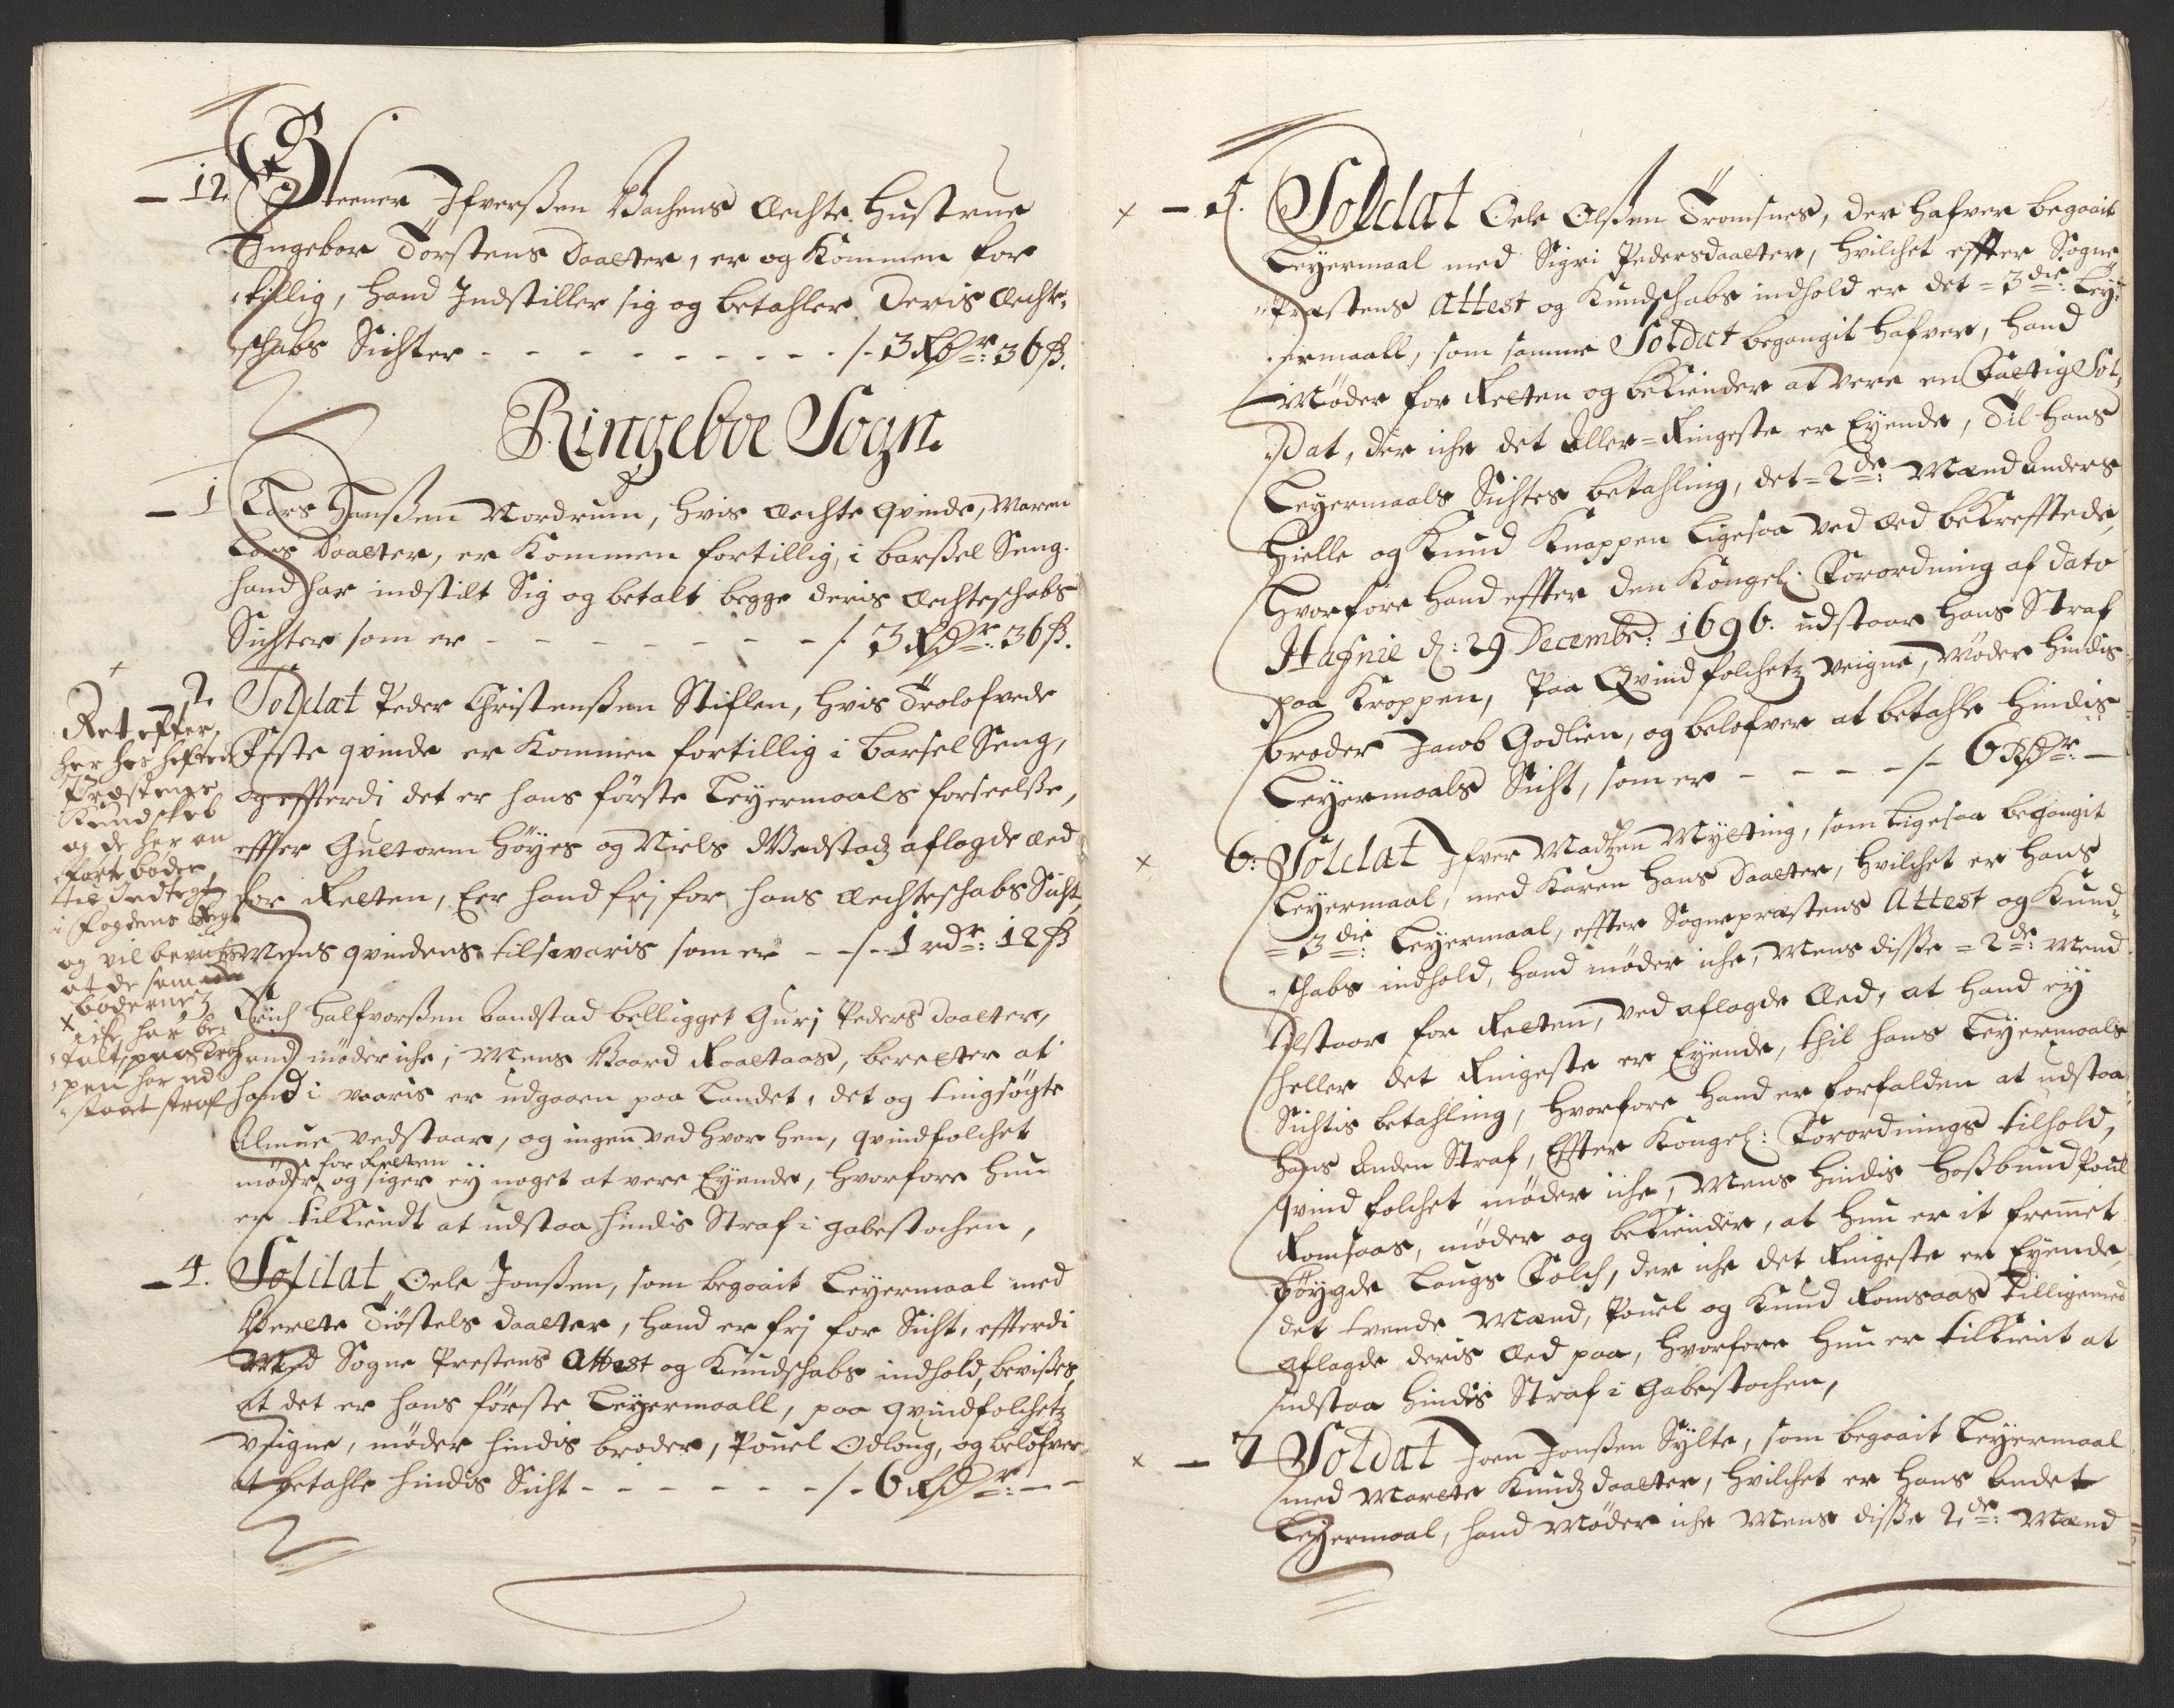 12. Steener Ifverßen Bachens Ächte Hustrue
Ingebor Torstens daatter, er og Kommen for
tillig, hand Indstiller sig og betahler deris Ächte-
schabs Sichter - - - - - - - - - - /- 3 Rdr: 36 ß.
Ringeboe Sogn.
1 Lars Hanßen Nordrum, hvis Ächte qvinde, Maren
Lars daatter, er Kommen fortillig, i barßel Seng.
hand har indstilt Sig og betalt begge deris Ächteschabs
Sichter som er - - - - - - - - /. 3 Rdr: 36 ß.
2. Soldat Peder Christenßen Stiflen, hvis Trolofvede
Feste qvinde er Kommen fortillig i barsel Seng,
og effterdi det er hans förste Leyermaals forseelße,
effter Guttorm Höyes og Niels Vedstad aflagde æd
for Retten, Eer hand frj for hans Ächteschabs Sicht,
Mens qvindens tilsvaris som er - - /- 1 rdr: 12 ß
Erich Halfvorßen bandstad belligget Gurj Peders daatter,
hand möder iche, Mens Baard Raattaas, beretter at
hand i vaaris er udgaaen paa Landet, det og tingsögte
Almue vedstaar, og ingen ved hvor hen, qvindfolchet
möder for Retten og siger ey noget at vere Eyende, hvorfore hun
er tilkiendt at udstaa hindis Straf i gabestochen,
4. Soldat Oele Jonßen, som begaait Leyermaal med
Berete Tiöstels daatter, hand er frj for Sicht, effterdi
Med Sogne Prestens Attest og Kundschabs indhold, bevißes,
at det er hans förste Leyermaall, paa qvindfolchetz
veigne, möder hindis broder, Pouel Odloug, og belofver
at betahle hindis Sicht - - - - - - - /- 6 Rdr: - -
Ret effter,
her hos hefted
Præstens
Kundskab
og de her an
förte böder
til Indtegt
i fogdens Regn
og vil bevises
at de som ey
böderne
x iche har be-
talt, paa Krop-
pen har ud-
staaet straf
5. Soldat Oele Olßen Tromsnes, der hafver begaait
Leyermaal med Sigri Pedersdaatter, hvilchet effter Sogne
Præstens Attest og Kundschabs indhold er det = 3die: Ley-
ermaall, som samme Soldat begangit hafver, hand
Möder for Retten og bekiender at vere en Fattig Sol-
dat, der iche det Aller-Ringeste er Eyende, Til hans
Leyermaals Sichtes betahling, det = 2de: Mænd Anders
Hielle og Knud Knappen Ligesaa ved æd bekrefftede,
Hvorfore hand effter den Kongel: Forordning af dato
Hafnie d: 29 Decembr: 1696. udstaar hans Straf
paa Kroppen, Paa Qvindfolchetz veigne, Möder hindis
broder Jacob Godlien, og belofver at betahle hindis
Leyermaals Sicht, som er - - - - /- 6 Rdr: -
6: Soldat Ifver Madtzen Mytting, som Ligesaa begangit
Leyermaal, med Karen Hans daatter, hvilchet er hans
= 3die: Leyermaal, effter Sogneprestens Attest og Kund-
schabs indhold, hand möder iche, Mens disße = 2de: Mend
tilstaar for Retten, ved aflagde Æd, at hand ey
heller det Ringeste er Eyende, thil hans Leyermaals
Sichtis betahling, hvorfore hand er forfalden at udstaa
Hans Anden Straf, Effter Kongel: Forordnings tilhold,
qvind folchet möder iche, Mens hindis Hoßbund Pouel
Romsaas, möder og bekiender, at hun er it fremmet
bögde Laugs Folch, der iche det Ringeste er Eyende,
det tvende Mænd, Pouel og Knud Romsaas Tilligemed
aflagde deris Æd paa, hvorfore hun er tilkient at
udstaa hindis Straf i Gabestochen,
7 Soldat Joen Jonßen Sylte, som begaait Leyermaal
med Marete Knudz daatter, hvilchet er hans Andet
Leyermaal, hand Möder iche Mens disße 2de: Mænd